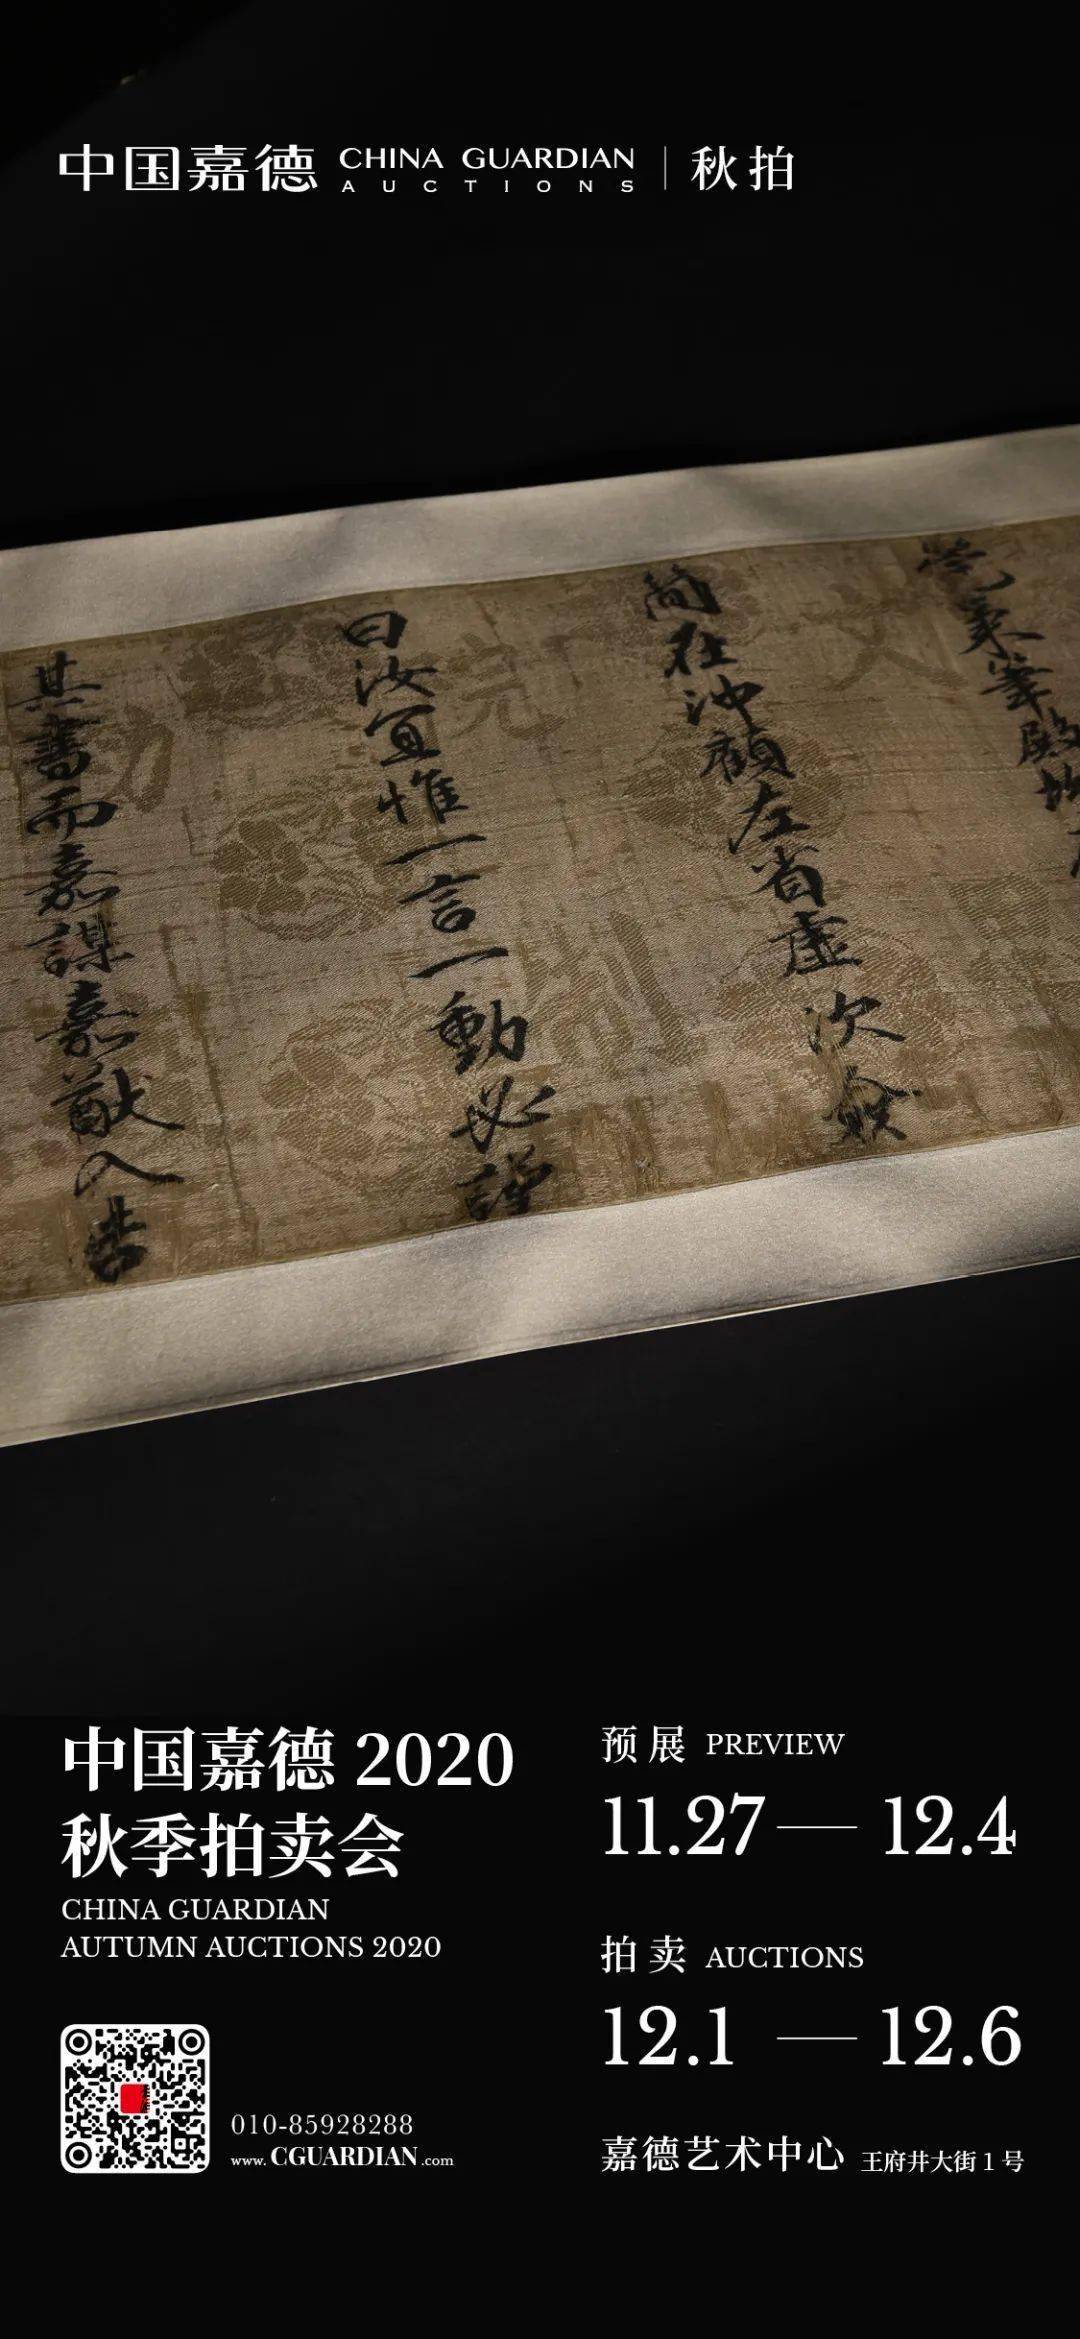 中国嘉德 CHINA GUARDIAN AUCTIONS | 秋拍
秉筆殿坳
簡在沖顧左省虛次僉
曰汝宜惟一言一動必謹
其書而嘉謀嘉猷入告
中国嘉德 2020
秋季拍卖会
CHINA GUARDIAN
AUTUMN AUCTIONS 2020
010-85928288
www.CGUARDIAN.com
预展 PREVIEW
11.27—12.4
拍卖 AUCTIONS
12.1—12.6
嘉德艺术中心 王府井大街1号